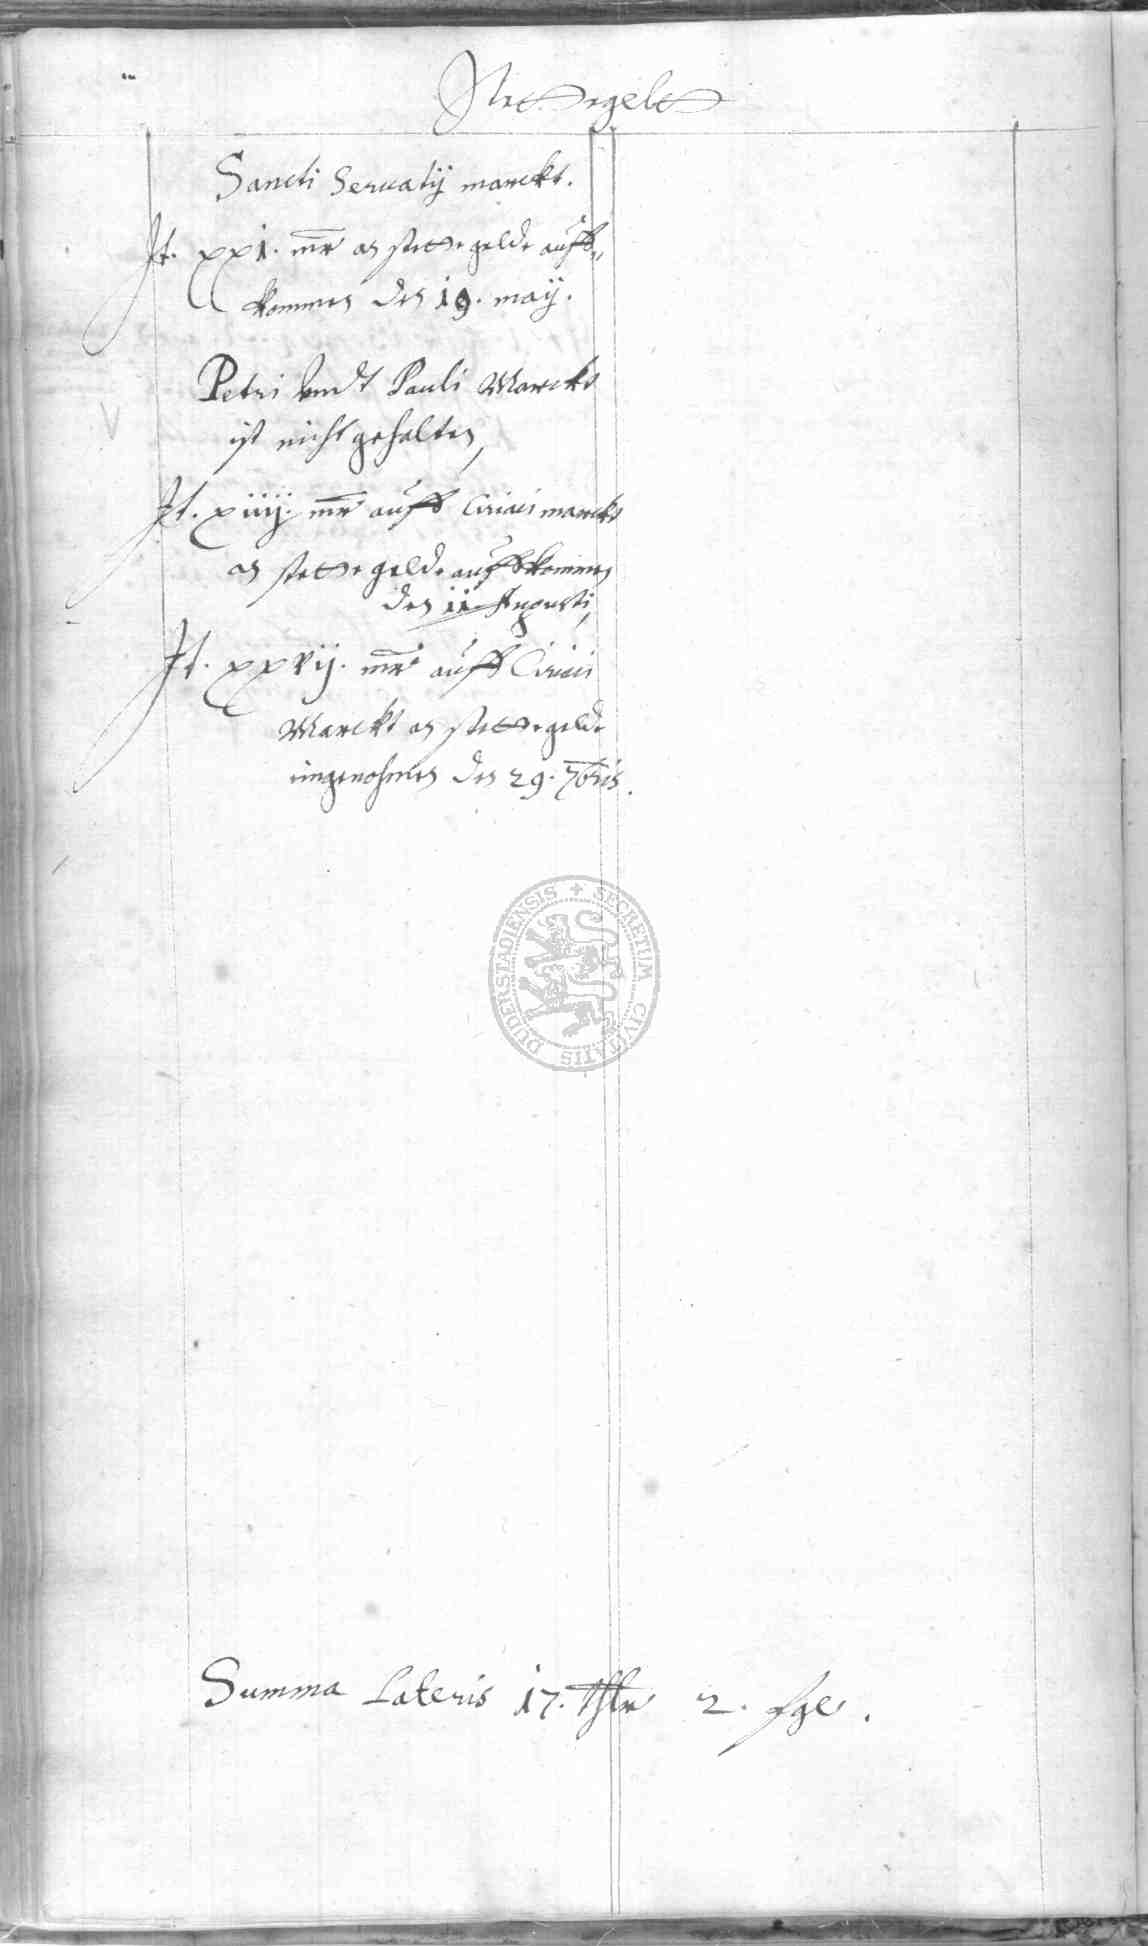 Stettegeltt
Sancti Seruatij marckt.
It. xxi. mr an stettegelde auff„
kommen den 19. maij.
Petri vndt Pauli Marckt
ist nicht gehalten,
It. xiiij. mr auff Ciriaci marckt
an stettegelde auffkommen
den 11 Augusti,
It. xxvij. mr auff
Marckt an stettegelde
eingenohmen den 29. 7bris.
DUDERSTADIENSIS + SECRETUM CIVITATIS
Summa Lateris 17. thlr 2. sgl.